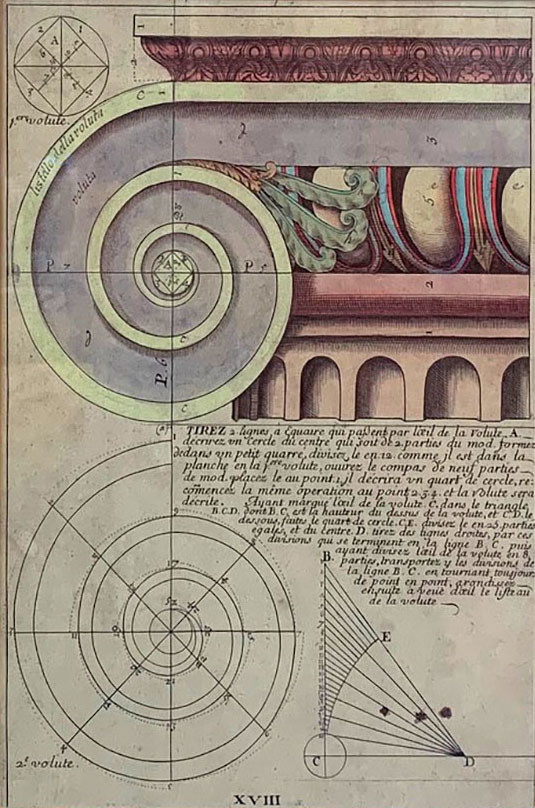 1.ere volute.
listello della voluta
voluta
TIREZ 2 lignes a Equaire qui passent par lœil de la Volute A.
décrirez vn Cercle du centre qui soit de 2 parties du mod. formez
dedans vn petit quarre, divisez le en 12. comme il est dans la
planche en la 1.ere volute, ouurez le compas de neuf parties
de mod. placez le au point 1, il décrira vn quart de cercle, re-
comencez la même operation au point 2.3.4. et la volute sera
décrite. Ayant marqué lœil de la volute C. dans le triangle
B.C.D. dont B.C. est la hauteur du dessus de la volute, et C.D. le
dessous, faites le quart de cercle C.E. divisez le en 25. parties
egales, et du centre. D. tirez des lignes droites, par ces
divisions qui se terminent en la ligne B. C. puis
ayant divisez lœil de la volute en 8.
parties, transportez y les divisions de
la ligne B. C. en tournant toujours
de point en point, arondissez
ensuite a veüe dœil le listeau
de la volute
B.
E
C
D
2.e volute.
XVIII